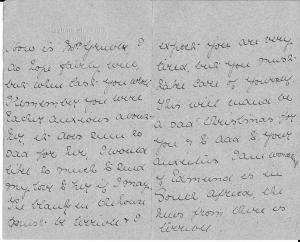 How is Mrs I
do hope fairly well,
but when last you wrote
I remember you were
rather anxious about
her, it does seem so
sad for her, I would
like so much to send
my love to her if I may.
The blank in the house
must be terrible & I
expect you are very
tired, but you must
take care of yourself.
This will indeed be
a sad Christmas for
you & to add to your
anxieties I am wondering
if Edmund is in
South Africa the
news from there is
terrible.